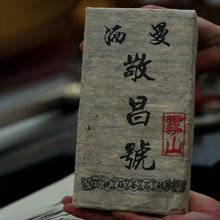 曼洒
敬昌號
霧山